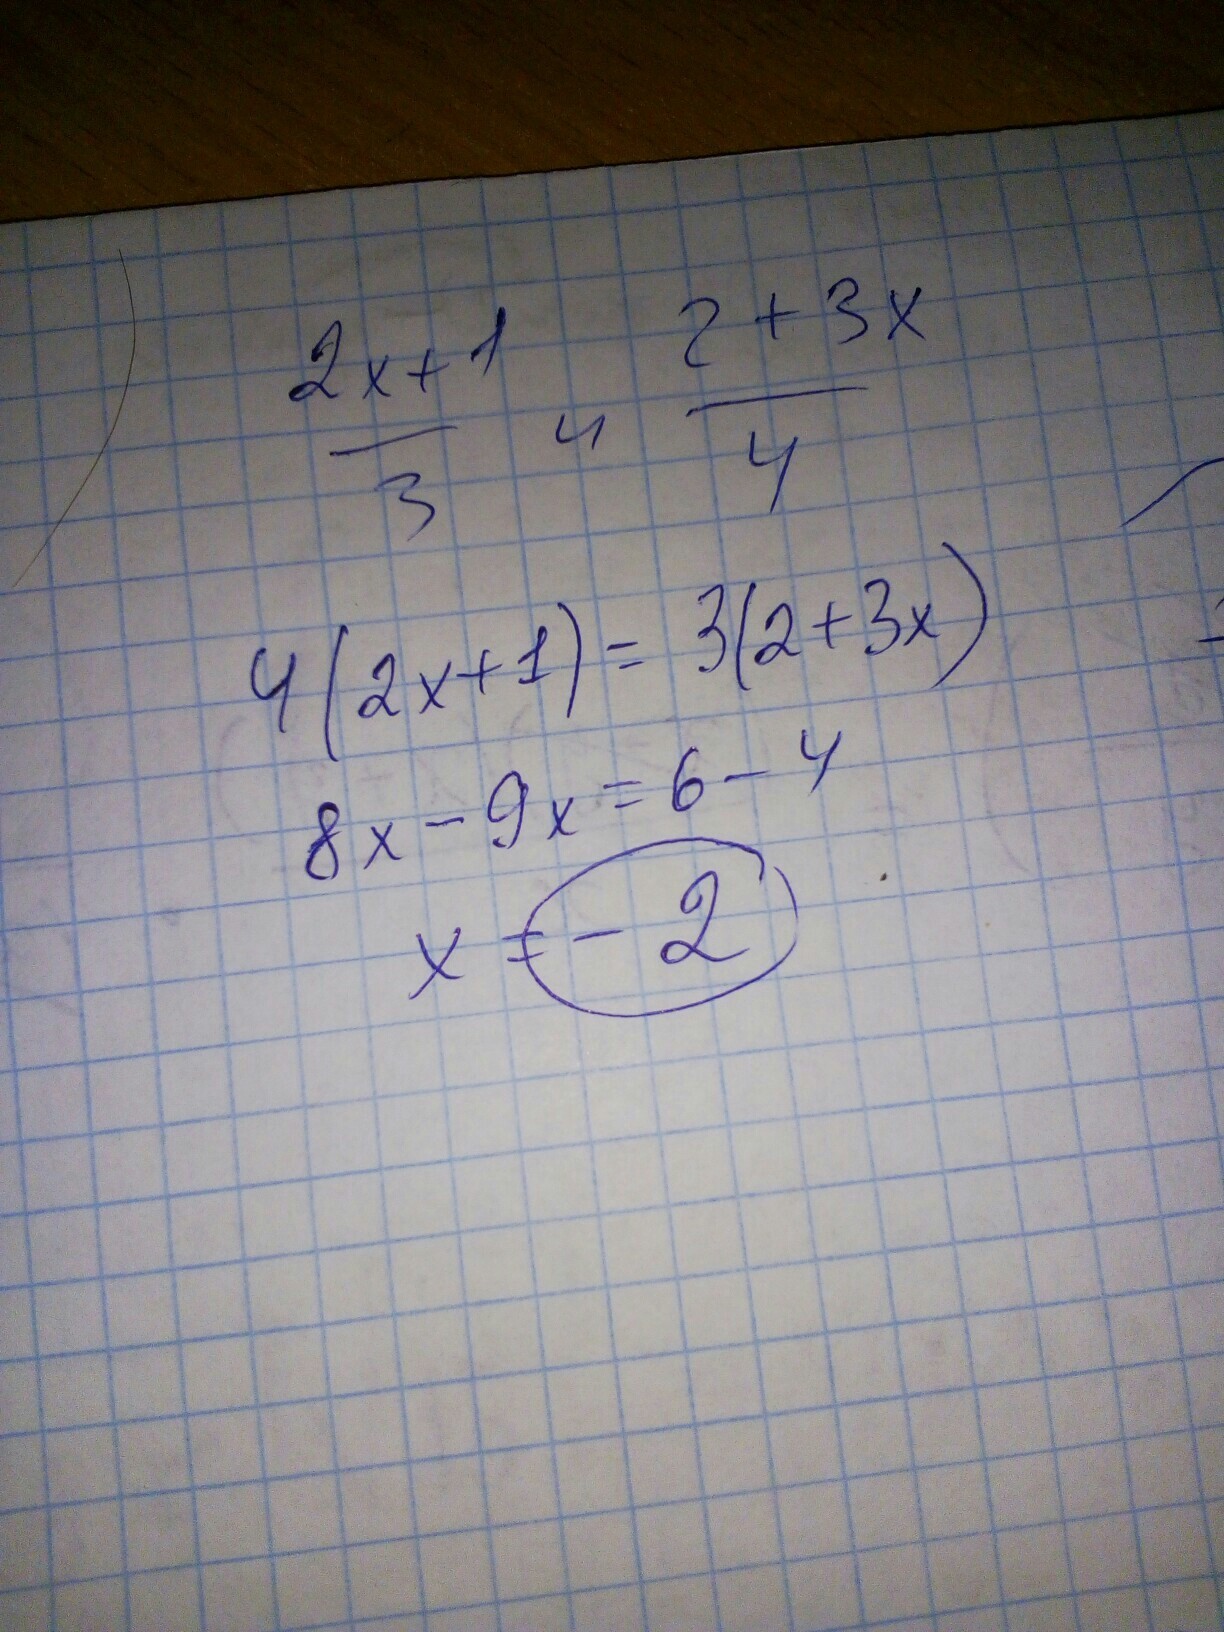 2x+1 и 2+3x
3 4
4(2x+1)=3(2+3x)
8x-9x=6-4
x=-2